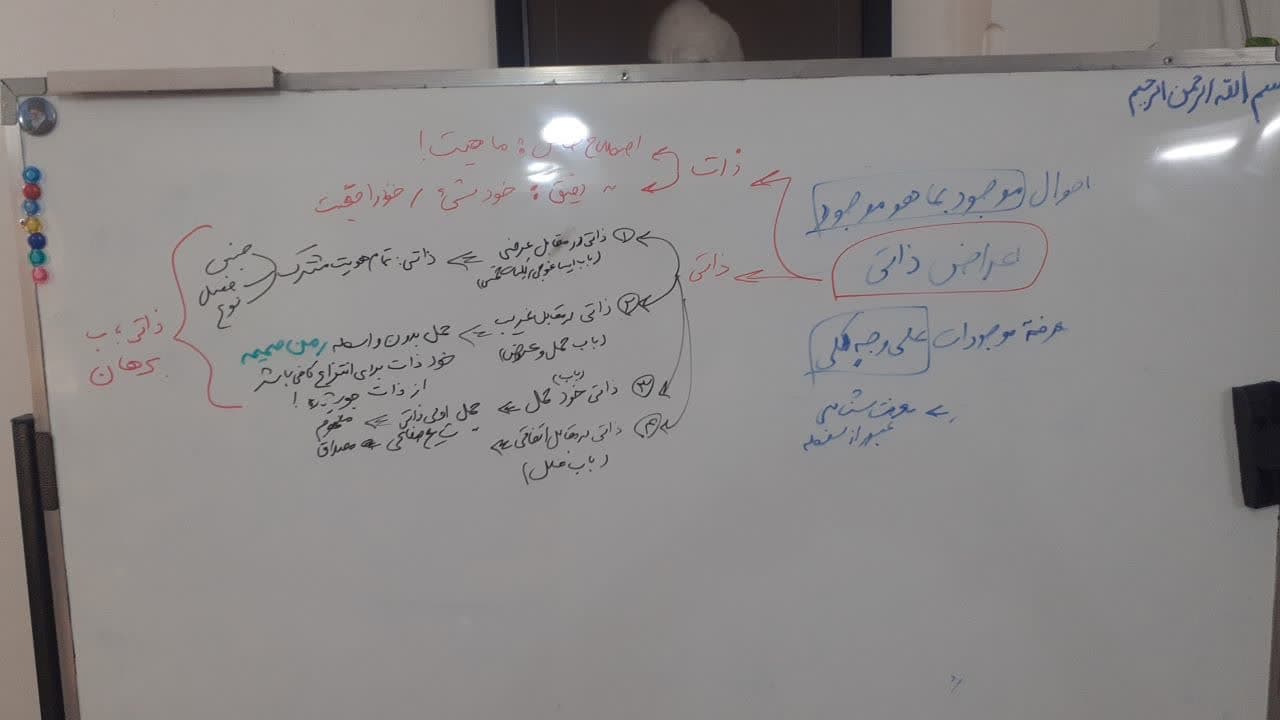 بسم الله الرحمن الرحیم
احوال موجود بما هو موجود
اعراض ذاتی
معرفة موجودات علی وجه کلی
معرفت شناسی
عبور از سفسطه
ذات
اصطلاح : ماهیت!
دقیق : خود شیء / خود واقعیت
ذاتی
۱ ذاتی در مقابل عرضی
(باب ایساغوجی / کلیات خمس)
ذاتی: تمام هویت مشترک
جنس
فصل
نوع
۲ ذاتی در مقابل غریب
(باب حمل و عرض)
حمل بدون واسطه / من صمیمه
خود ذات برای انتزاع کافی باشد
از ذات !
۳ ذاتی خود حمل
(باب)
حمل اولی ذاتی مفهوم
شایع صناعی مصداق
۴ ذاتی در مقابل اتفاقی
(باب علل)
ذاتی باب
برهان